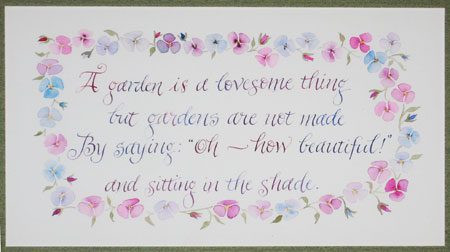 A garden is a lovesome thing
but gardens are not made
By saying: "Oh – how beautiful!"
and sitting in the shade.